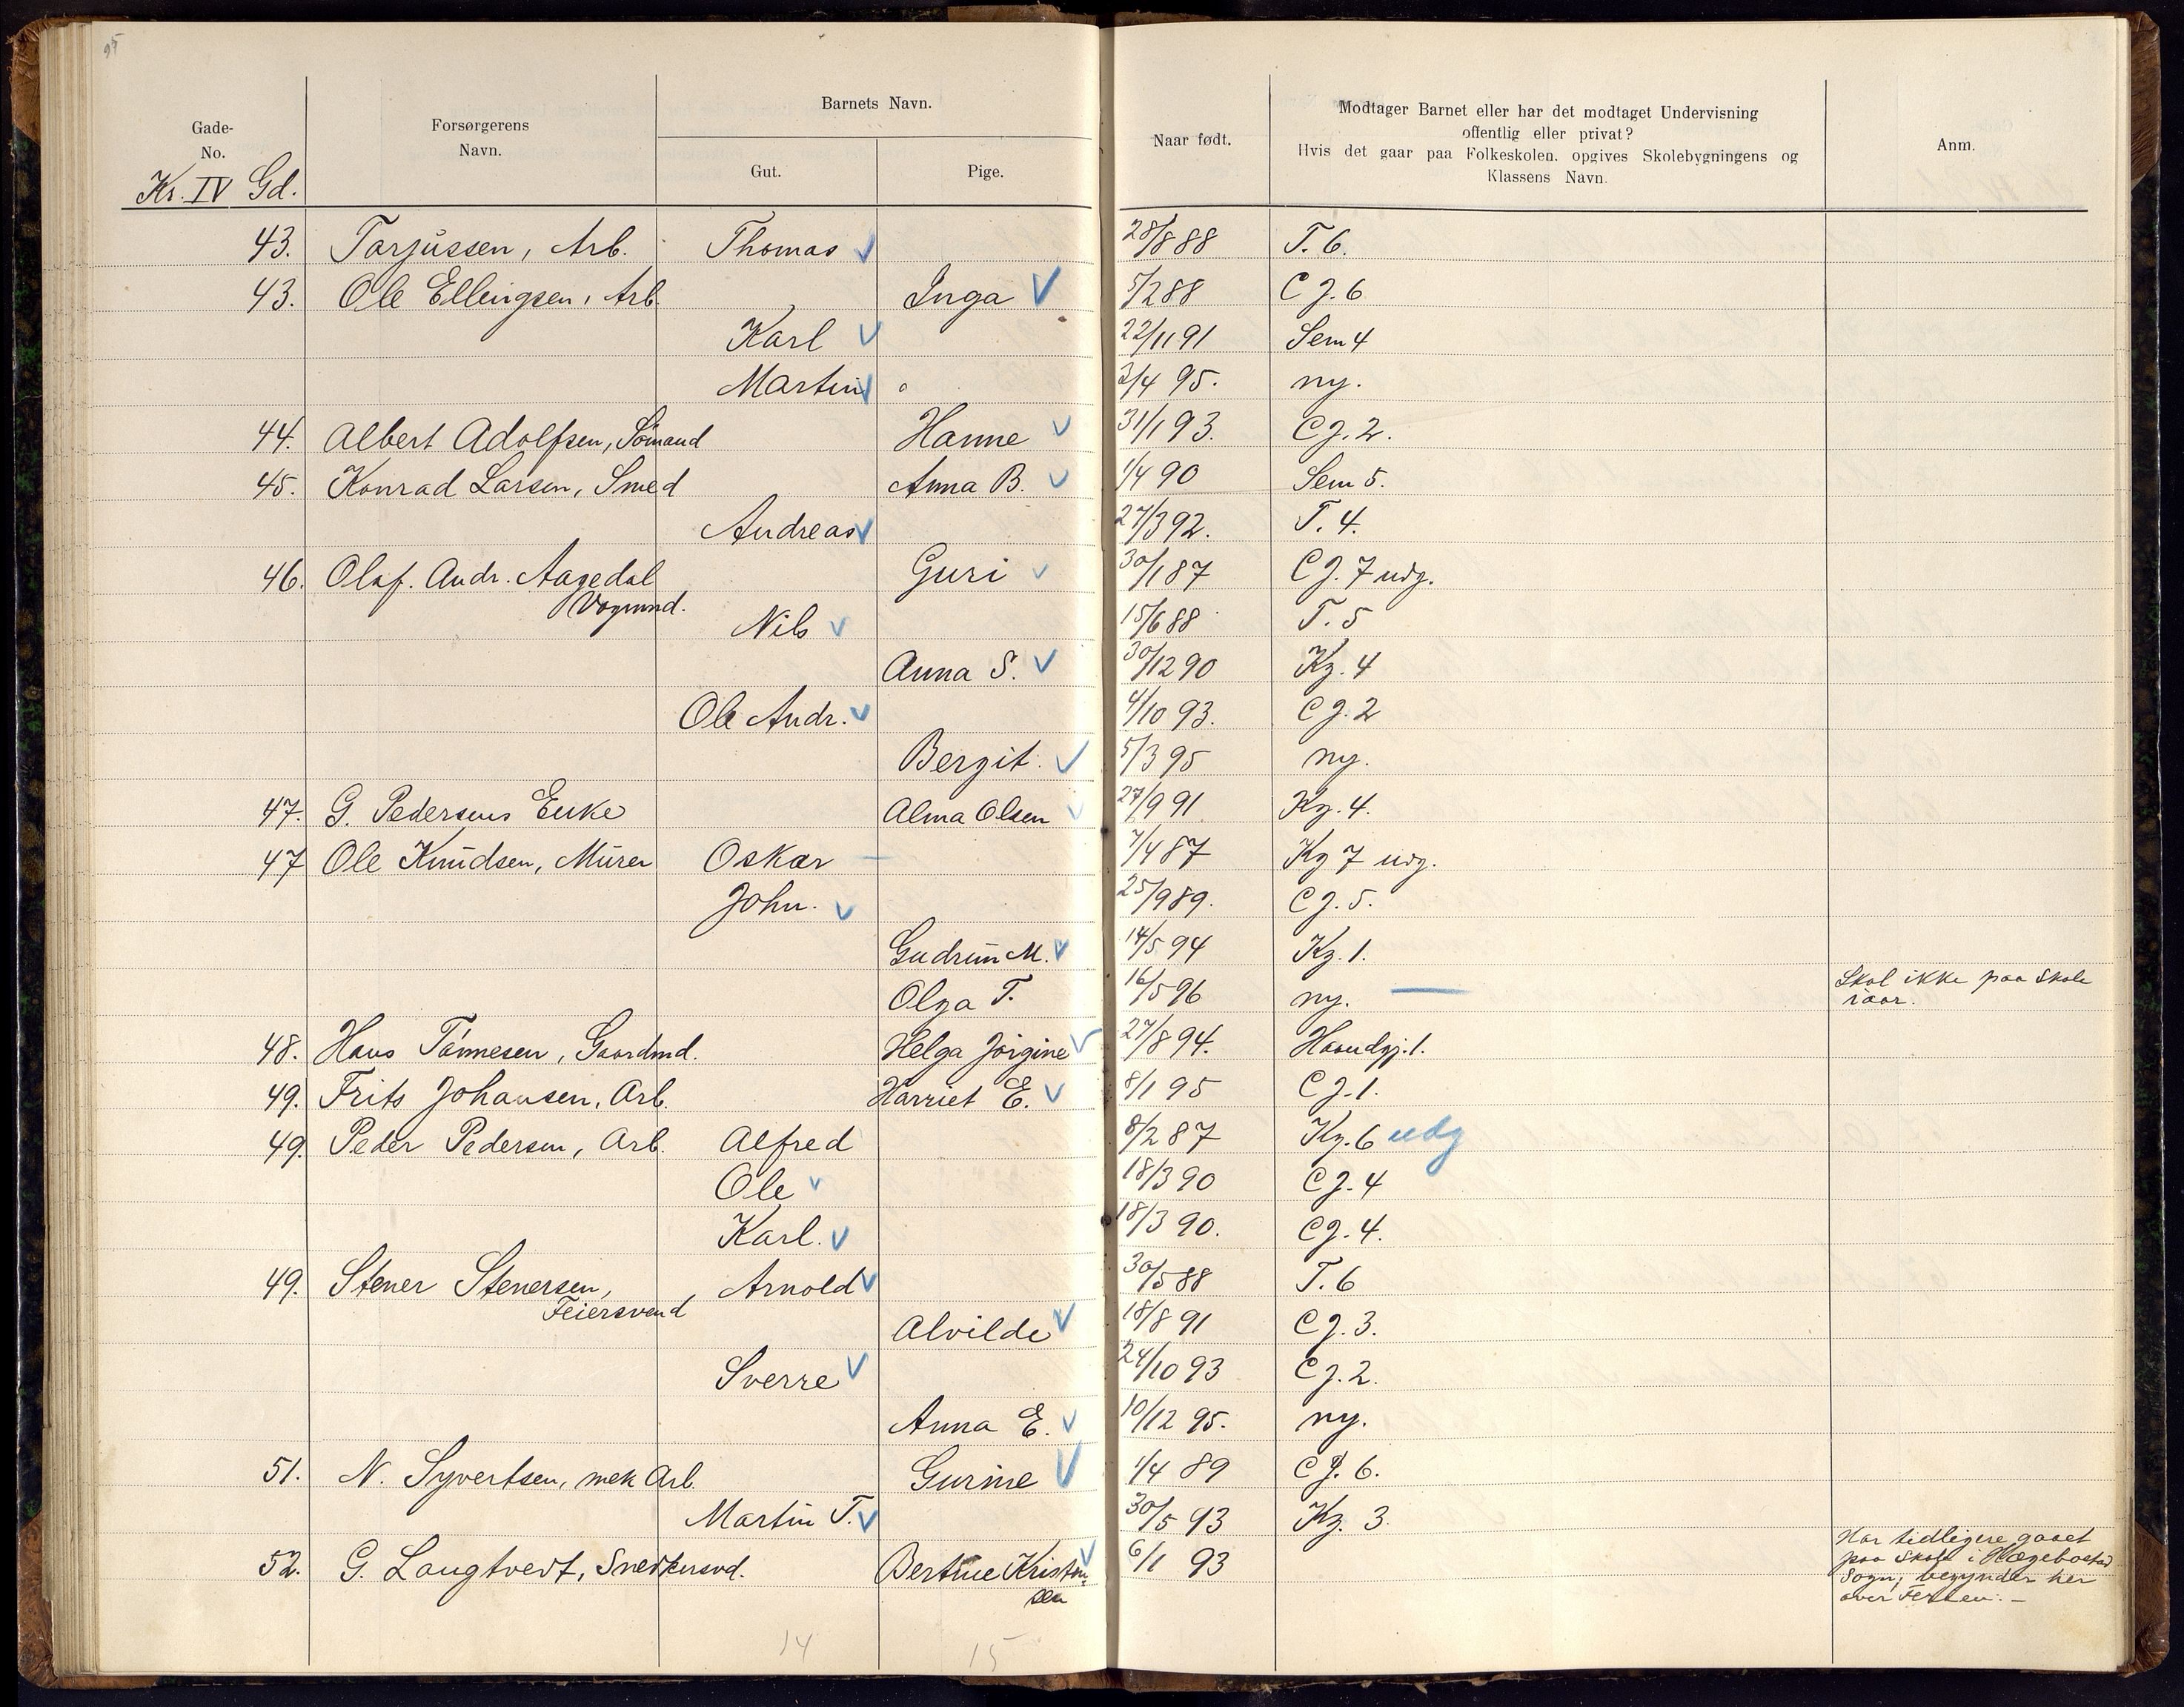 95
Gade-
No.
Forsørgerens
Navn.
Barnets Navn.
Gut.
Pige.
Naar født.
Modtager Barnet eller har det modtaget Undervisning
offentlig eller privat?
Hvis det gaar paa Folkeskolen, opgives Skolebygningens og
Klassens Navn.
Anm.
Kr. IV Gd.
43. Tarjussen, Arb. Thomas 28/8 88 T. 6.
43. Ole Ellingsen, Arb. Inga 5/2 88 C J. 6
Karl 22/11 91 Sem 4
Martin 3/4 95. ny.
44. Albert Adolfsen, Sömand Hanne 31/1 93. C J. 2.
45. Konrad Larsen, Smed Anna B. 1/4 90 Sem 5.
Andreas 27/3 92. T. 4.
46. Olaf. Andr. Aagedal Guri 30/1 87 C J. 7 udg.
Vognmd.
Nils 15/6 88 T. 5
Anna S. 30/12 90 Kz. 4
Ole Andr. 4/10 93. C J. 2
Bergit. 5/3 95 ny.
47. G. Pedersens Enke Alma Olsen 27/9 91 Kz. 4.
47 Ole Knudsen, Murer Oskar 7/4 87 Kz 7 udg.
John. 25/9 89. C J. 5.
Gudrun M. 14/5 94 Kz. 1.
Olga T. 16/5 96 ny. Skal ikke paa Skole
iaar.
48. Hans Tönnesen, Gaardmd. Helga Jörgine 27/8 94. Haandgj. 1.
49. Frits Johansen, Arb. Harriet E. 8/1 95 C J. 1.
49. Peder Pedersen, Arb. Alfred 8/2 87 Kz. 6 udg
Ole 18/3 90 C J. 4
Karl. 18/3 90. C J. 4.
49. Stener Stenersen, Arnold 30/5 88 T. 6
Feiersvend
Alvilde 18/8 91 C J. 3.
Sverre 24/10 93 C J. 2.
Anna E. 10/12 95. ny.
51. N. Syvertsen, mek Arb. Gurine 1/4 89 C J. 6.
Martin T. 30/5 93 Kz. 3
52. G. Langtvedt, Snedkersvd. Bertine Kristen-
sen 6/1 93 Har tidligere gaaet
paa Skole i Hægebostad
Sogn; begynder her
over Ferien. –
14 15